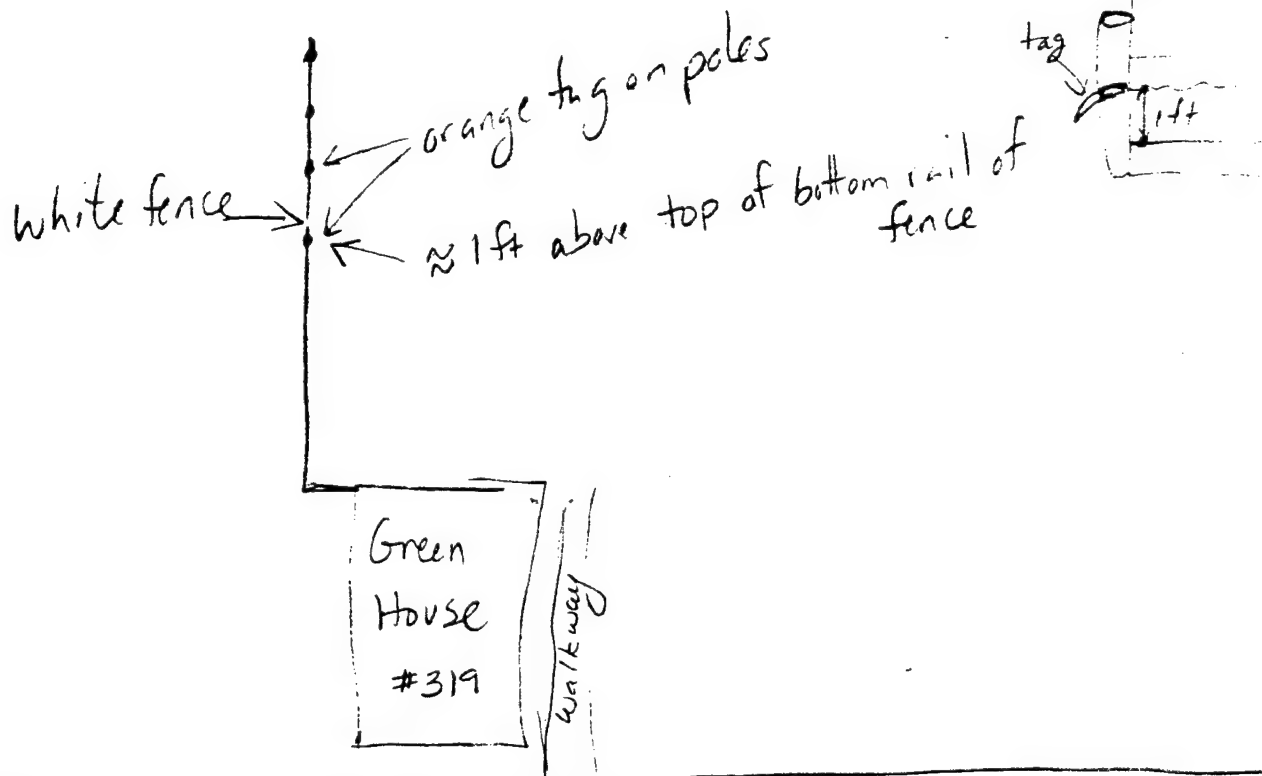 tag
1ft
orange tag on poles
white fence
≈ 1 ft above top of bottom rail of
fence
Green
House
#319
walkway